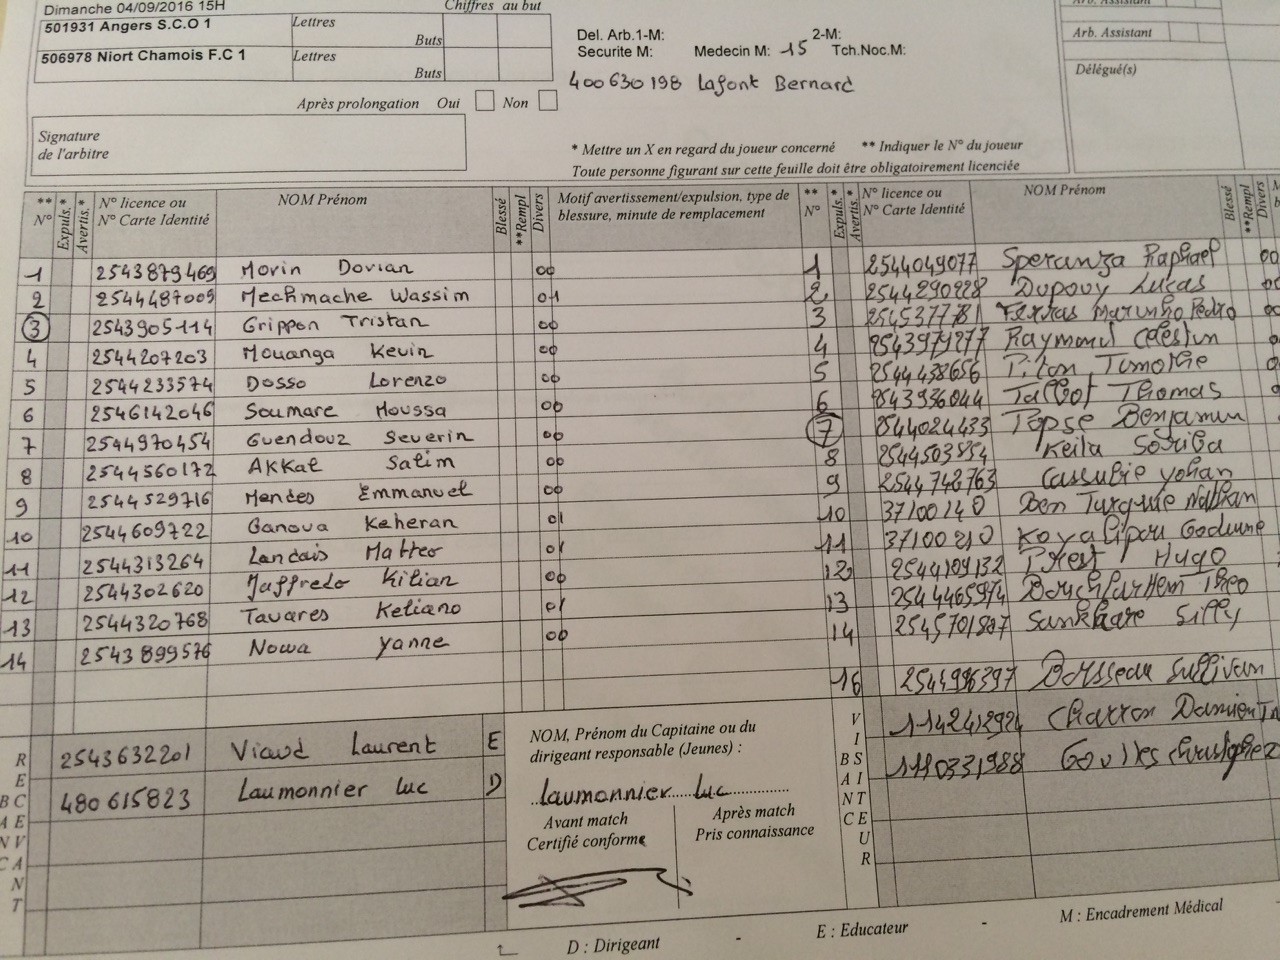 Dimanche 04/09/2016 15H
Chiffres au but
501931 Angers S.C.O 1
Lettres
Buts
506978 Niort Chamois F.C 1
Lettres
Buts
Après prolongation Oui Non
Signature
de l'arbitre
Del. Arb.1-M: 2-M:
Securite M: Medecin M: 15 Tch.Noc.M:
400630198 Lafont Bernard
Arb. Assistant
Arb. Assistant
Délégué(s)
* Mettre un X en regard du joueur concerné ** Indiquer le N° du joueur
Toute personne figurant sur cette feuille doit être obligatoirement licenciée
** N° Expuls. * Avertis. * N° licence ou N° Carte Identité NOM Prénom Blessé **Rempl Divers Motif avertissement/expulsion, type de blessure, minute de remplacement
1 2543879469 Morin Dorian 00
2 2544487009 Mechmache Wassim 01
3 2543905114 Grippon Tristan 00
4 2544207203 Mouanga Kevin 00
5 2544233574 Dosso Lorenzo 00
6 2546142046 Soumare Moussa 00
7 2544970454 Guendouz Severin 00
8 2544560172 Akkal Salim 00
9 2544529716 Mendes Emmanuel 00
10 2544609722 Ganoua Keheran 01
11 2544313264 Landais Matteo 01
12 2544302620 Jaffredo Kilian 00
13 2544320768 Tavares Keliano 01
14 2543899576 Nowa Yanne 00
** N° Expuls. * Avertis. * N° licence ou N° Carte Identité NOM Prénom Blessé **Rempl Divers
1 2544049077 Speranza Raphael
2 2544290228 Dupouy Lucas
3 254537781 Marinho Pedro
4 2543971277 Raymond Célestin
5 2544438656 Piton Timothé
6 2543936044 Tallot Thomas
7 2544024433 Popsé Benjamin
8 2544503854 Keita Soriba
9 2544748763 Cassubie Yohan
10 37100140 Ben
11 37100210
12 2544109132 Prest Hugo
13 Theo
14 Silly
16 2544996397 Sullivan
RECEVANT
BANC
2543632201 Viaud Laurent E
480615823 Laumonnier Luc D
NOM, Prénom du Capitaine ou du
dirigeant responsable (Jeunes) :
Laumonnier Luc
Avant match
Certifié conforme
Après match
Pris connaissance
VISITEUR
BANC
1142412924 Charron Damien
1110331988
D : Dirigeant - E : Educateur - M : Encadrement Médical